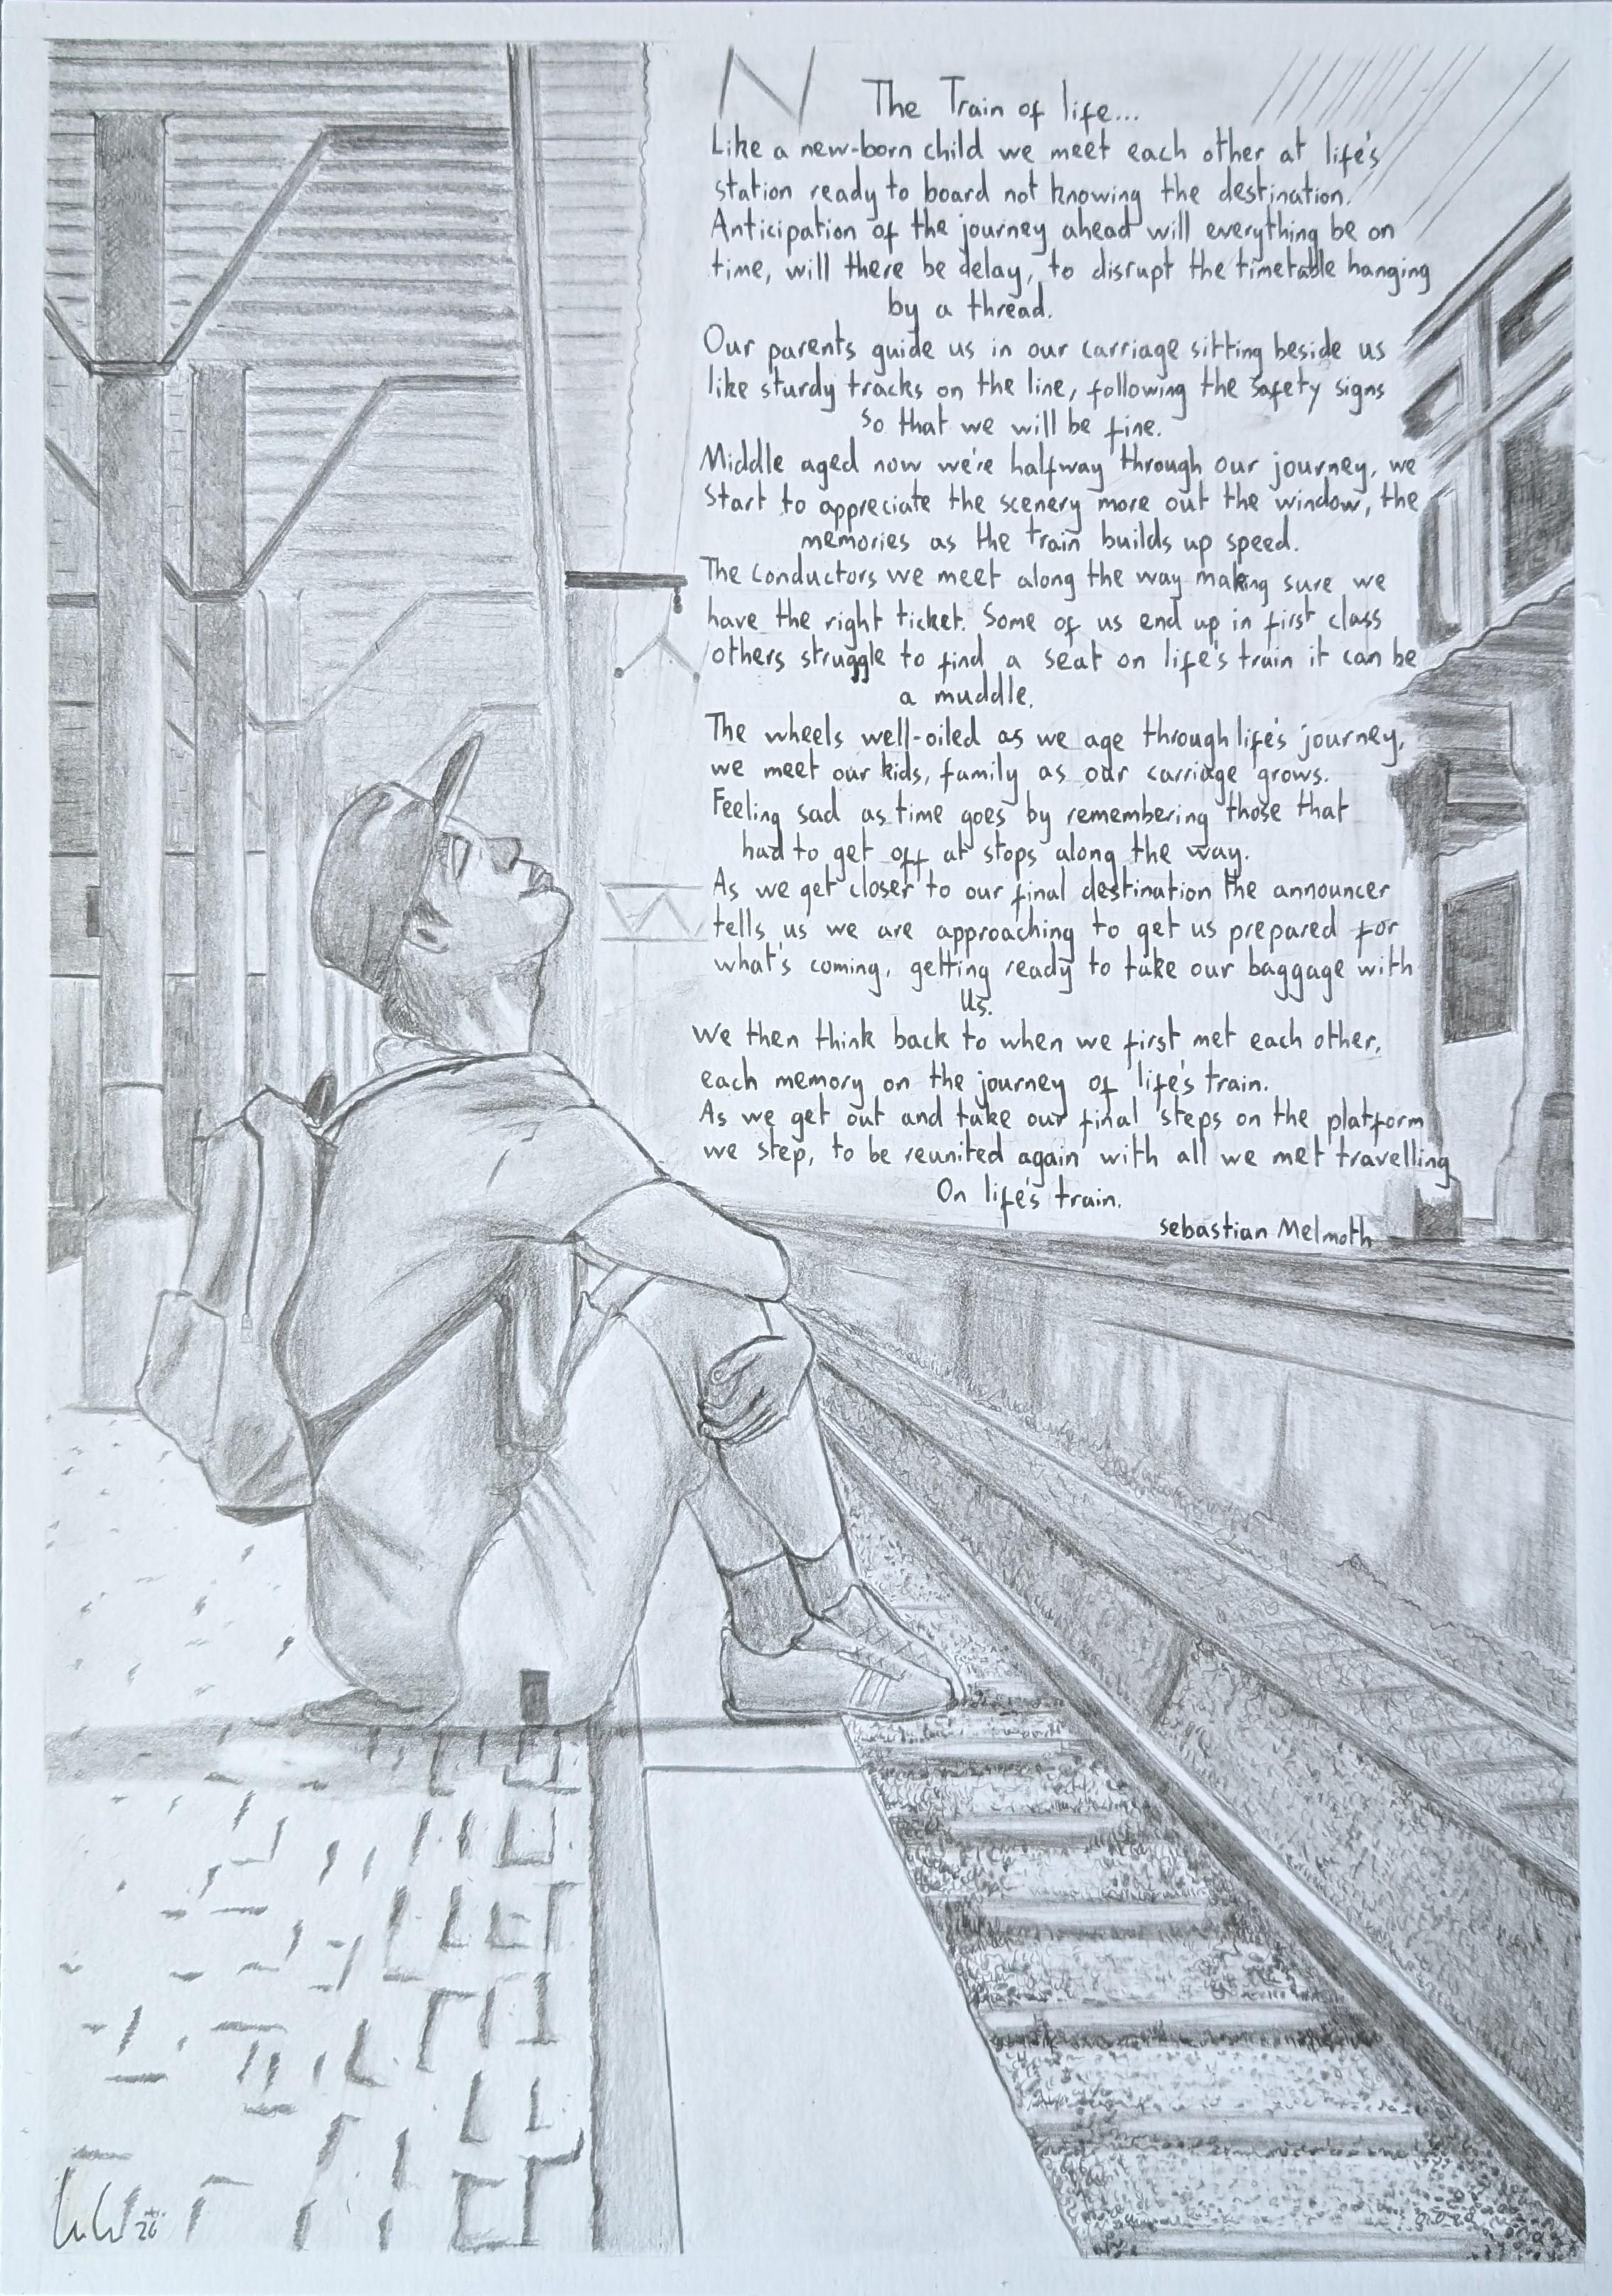 The Train of life...
Like a new-born child we meet each other at life's
station ready to board not knowing the destination.
Anticipation of the journey ahead will everything be on
time, will there be delay, to disrupt the timetable hanging
by a thread.
Our parents guide us in our carriage sitting beside us
like sturdy tracks on the line, following the safety signs
so that we will be fine.
Middle aged now we're halfway through our journey, we
start to appreciate the scenery more out the window, the
memories as the train builds up speed.
The conductors we meet along the way making sure we
have the right ticket. Some of us end up in first class
others struggle to find a seat on life's train it can be
a muddle.
The wheels well-oiled as we age through life's journey,
we meet our kids, family as our carriage grows.
Feeling sad as time goes by remembering those that
had to get off at stops along the way.
As we get closer to our final destination the announcer
tells us we are approaching to get us prepared for
what's coming, getting ready to take our baggage with
us.
We then think back to when we first met each other,
each memory on the journey of life's train.
As we get out and take our final steps on the platform
we step, to be reunited again with all we met travelling
On life's train.
Sebastian Melmoth
26